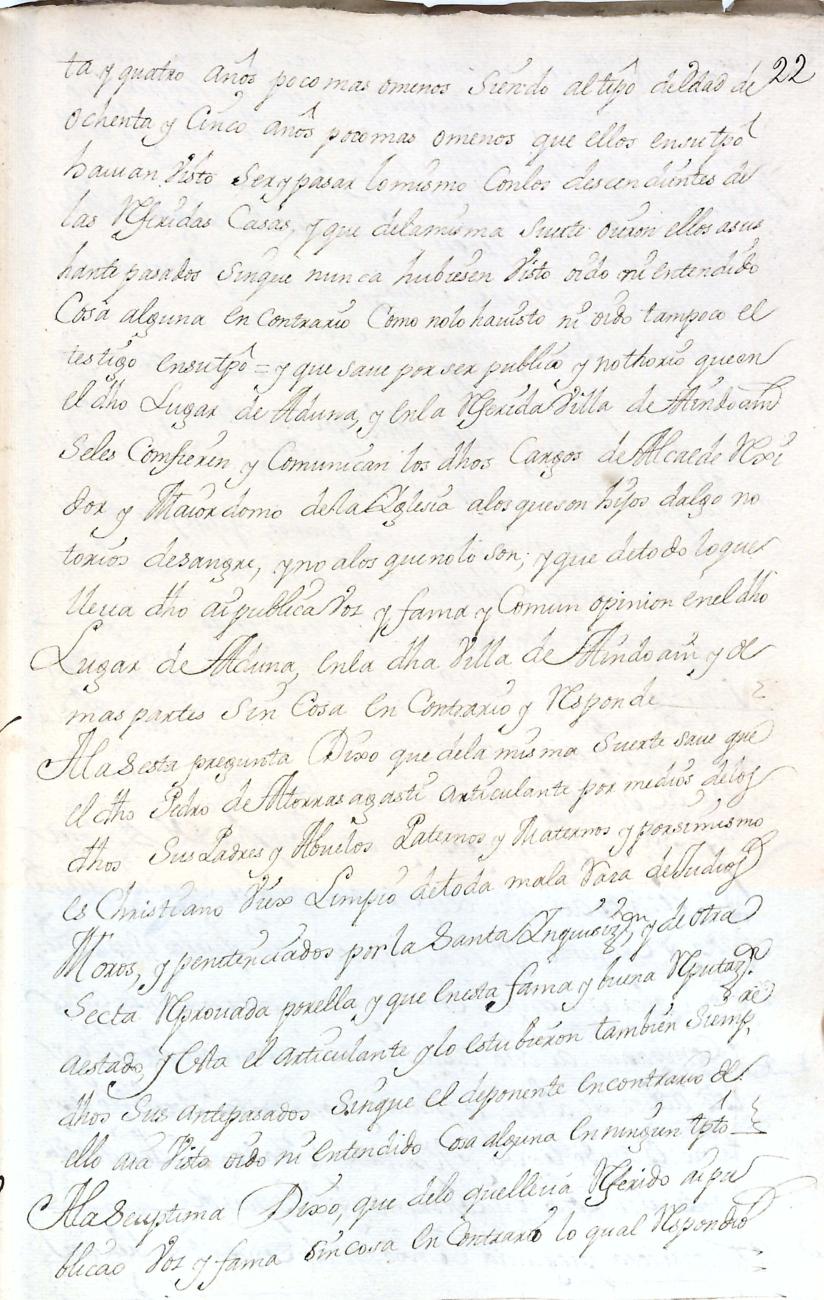 22
ta y quatro años poco mas omenos siendo al tpo deldad de
ochenta y Cinco años poco mas omenos que ellos ensutpo
hauian Visto Ser y pasar lo mismo Conlos descendientes de
las Rferidas Casas, y que delamisma suerte oieron ellos asus
hantepasados sinque nunca hubiesen Visto oido ni entendido
Cosa alguna en Contrario Como nolo hauisto ni oido tampoco el
testigo ensutpo = y que saue por ser publico y nothorio queen
el dho Lugar de Aduna, y enla Rferida Villa de Aindoain
seles Comfieren y Comunican los dhos Cargos de Alcalde Rxi
dor y Maiordomo dela Yglesia alos queson hijos dalgo no
torios desangre, y no alos quenolo son; y que detodo loque
lleua dho ai publica Voz y fama y Comun opinion enel dho
Lugar de Aduna, enla dha Villa de Aindoain y de
mas partes sin Cosa en Contrario y Rsponde
Ala Sesta pregunta Dixo que dela misma suerte saue que
el dho Pedro de Atorrasagasti articulante por medios delos
dhos sus Padres y Abuelos Paternos y Maternos y porsimismo
es Christiano Viexo Limpio detoda mala Raza de Judios
Moros, y penitenciados por la Santa Inquisizon, y de otra
Secta Rprouada porella y que enesta fama y buena Rputazon
aestado, y esta el articulante y lo estubieron tambien siempre
dhos sus antepasados sinque el deponente encontrario de
ello aia Visto oido ni entendido Cosa alguna en ningun tpo
Ala Seuptima Dixo, que delo quelleua Rferido ai pu
blicao Voz y fama sin cosa en Contrario lo qual Rspondio